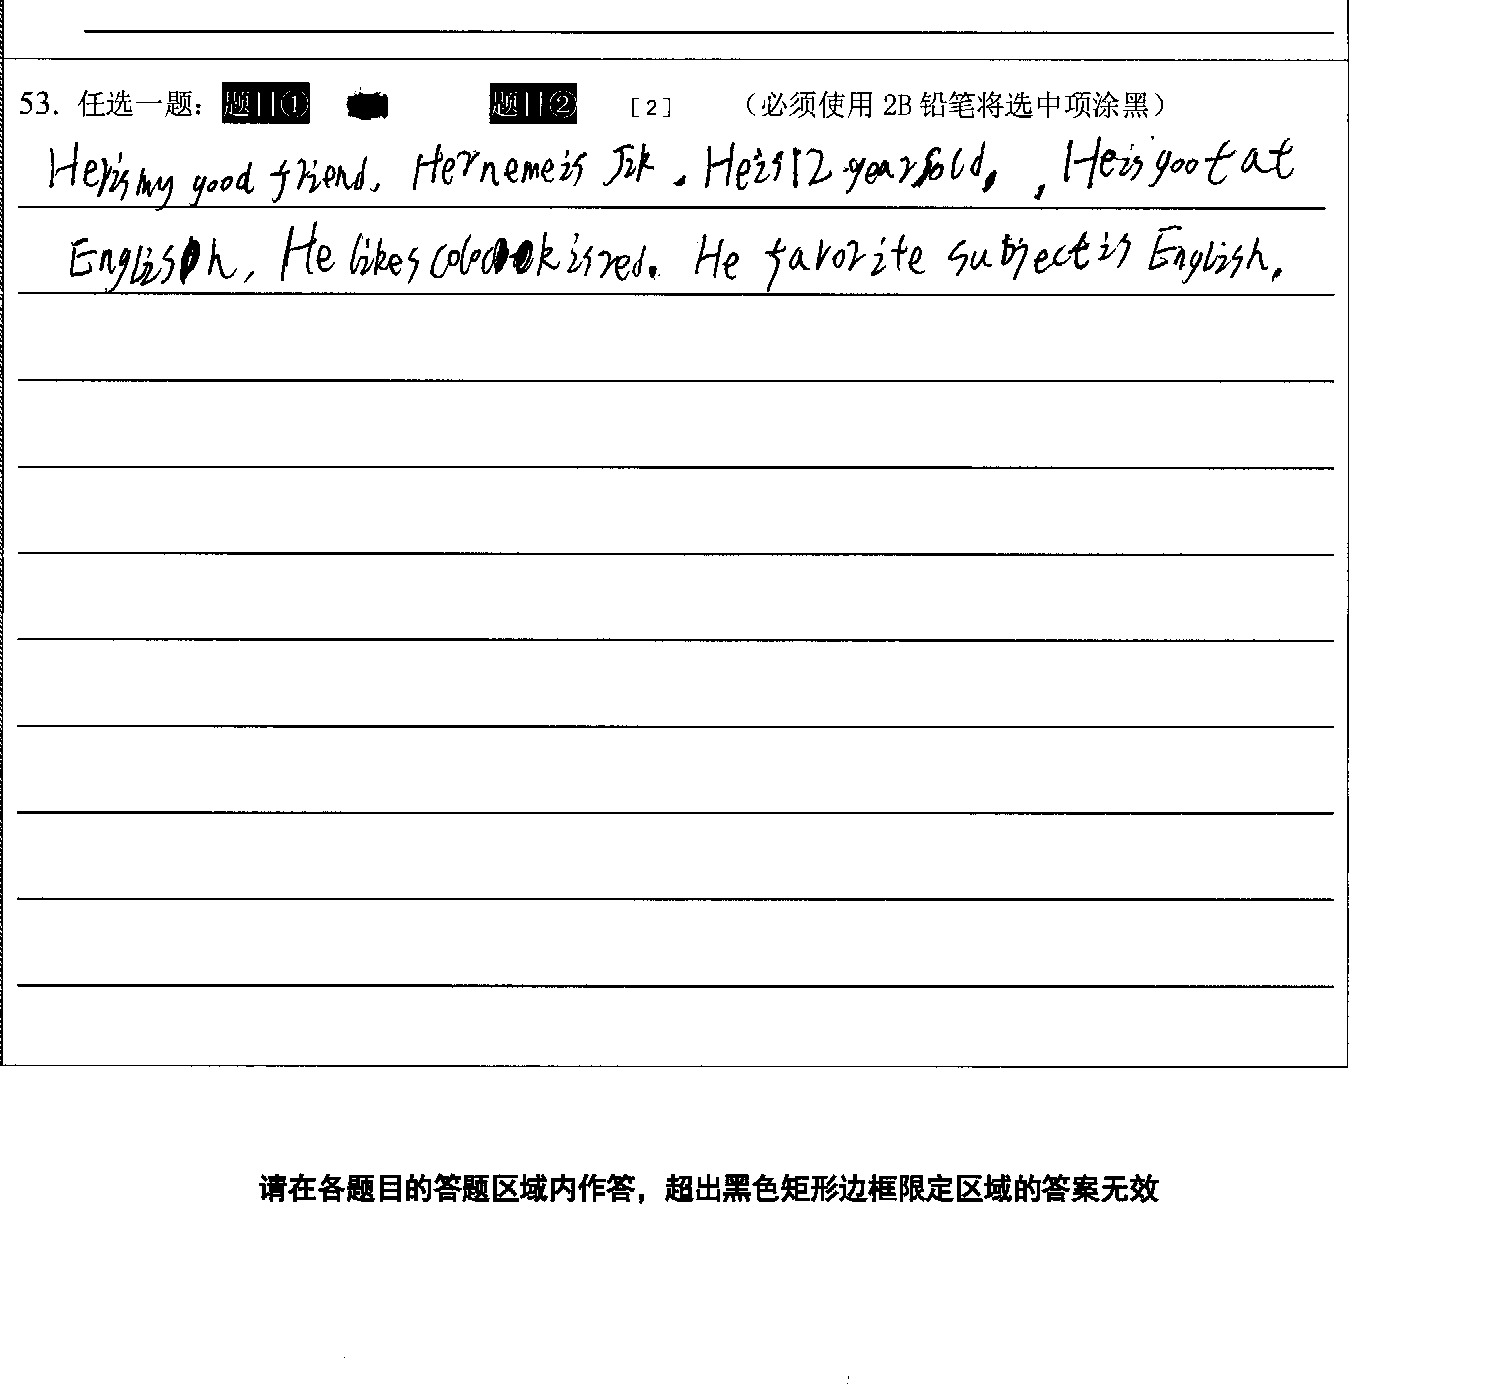 53. 任选一题：题目① 题目② [2] （必须使用 2B 铅笔将选中项涂黑）
Her is my good friend. Her neme is Jik. He is 12 years old. , He is goot at
English, He likes is red. He favorite subject is English.
请在各题目的答题区域内作答，超出黑色矩形边框限定区域的答案无效